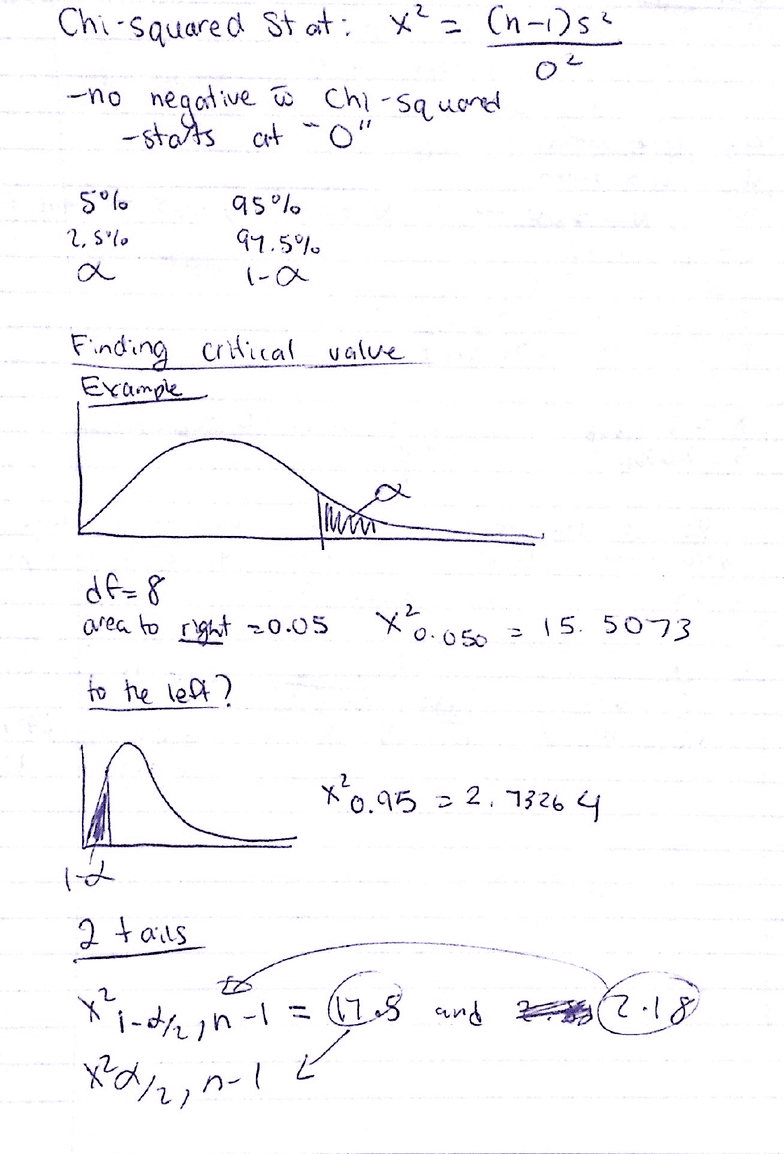 Chi-squared Stat: x² = (n-1)s² / σ²
-no negative in Chi-squared
-starts at "0"
5% 95%
2.5% 97.5%
α 1-α
Finding critical value
Example
α
df=8
area to right =0.05 x²0.050 = 15.5073
to the left?
x²0.95 = 2.73264
1-α
2 tails
x²1-α/2, n-1 = 17.5 and 2.18
x²α/2, n-1